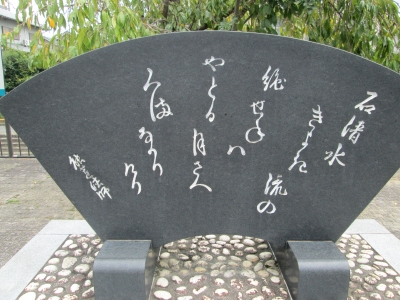 石清水
きよき流の
絶せねハ
やとる月さへ
くまなかりけり
能蓮法師